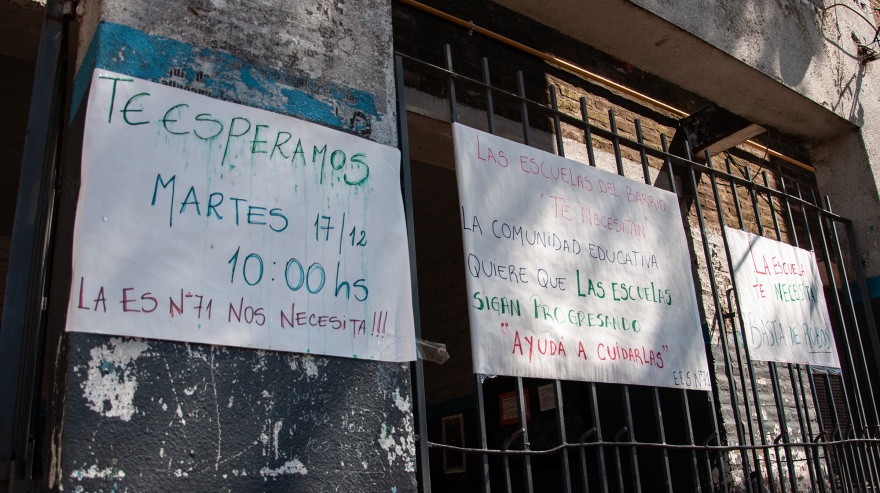 TE ESPERAMOS
MARTES 17/12
10:00hs
LA ES N°71 NOS NECESITA!!!
LAS ESCUELAS DEL BARRIO
"TE NECESITAN"
LA COMUNIDAD EDUCATIVA
QUIERE QUE LAS ESCUELAS
SIGAN PROGRESANDO
"AYUDÁ A CUIDARLAS"
EES N°71
LA ESCUELA
TE NECESITA
"BASTA DE ROBOS"